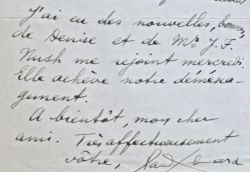 J'ai eu des nouvelles, bonnes,
de Denise et de Mr J. F.
Nush me rejoint mercredi.
Elle achève notre déména-
gement.
A bientôt, mon cher
ami. Très affectueusement
vôtre,